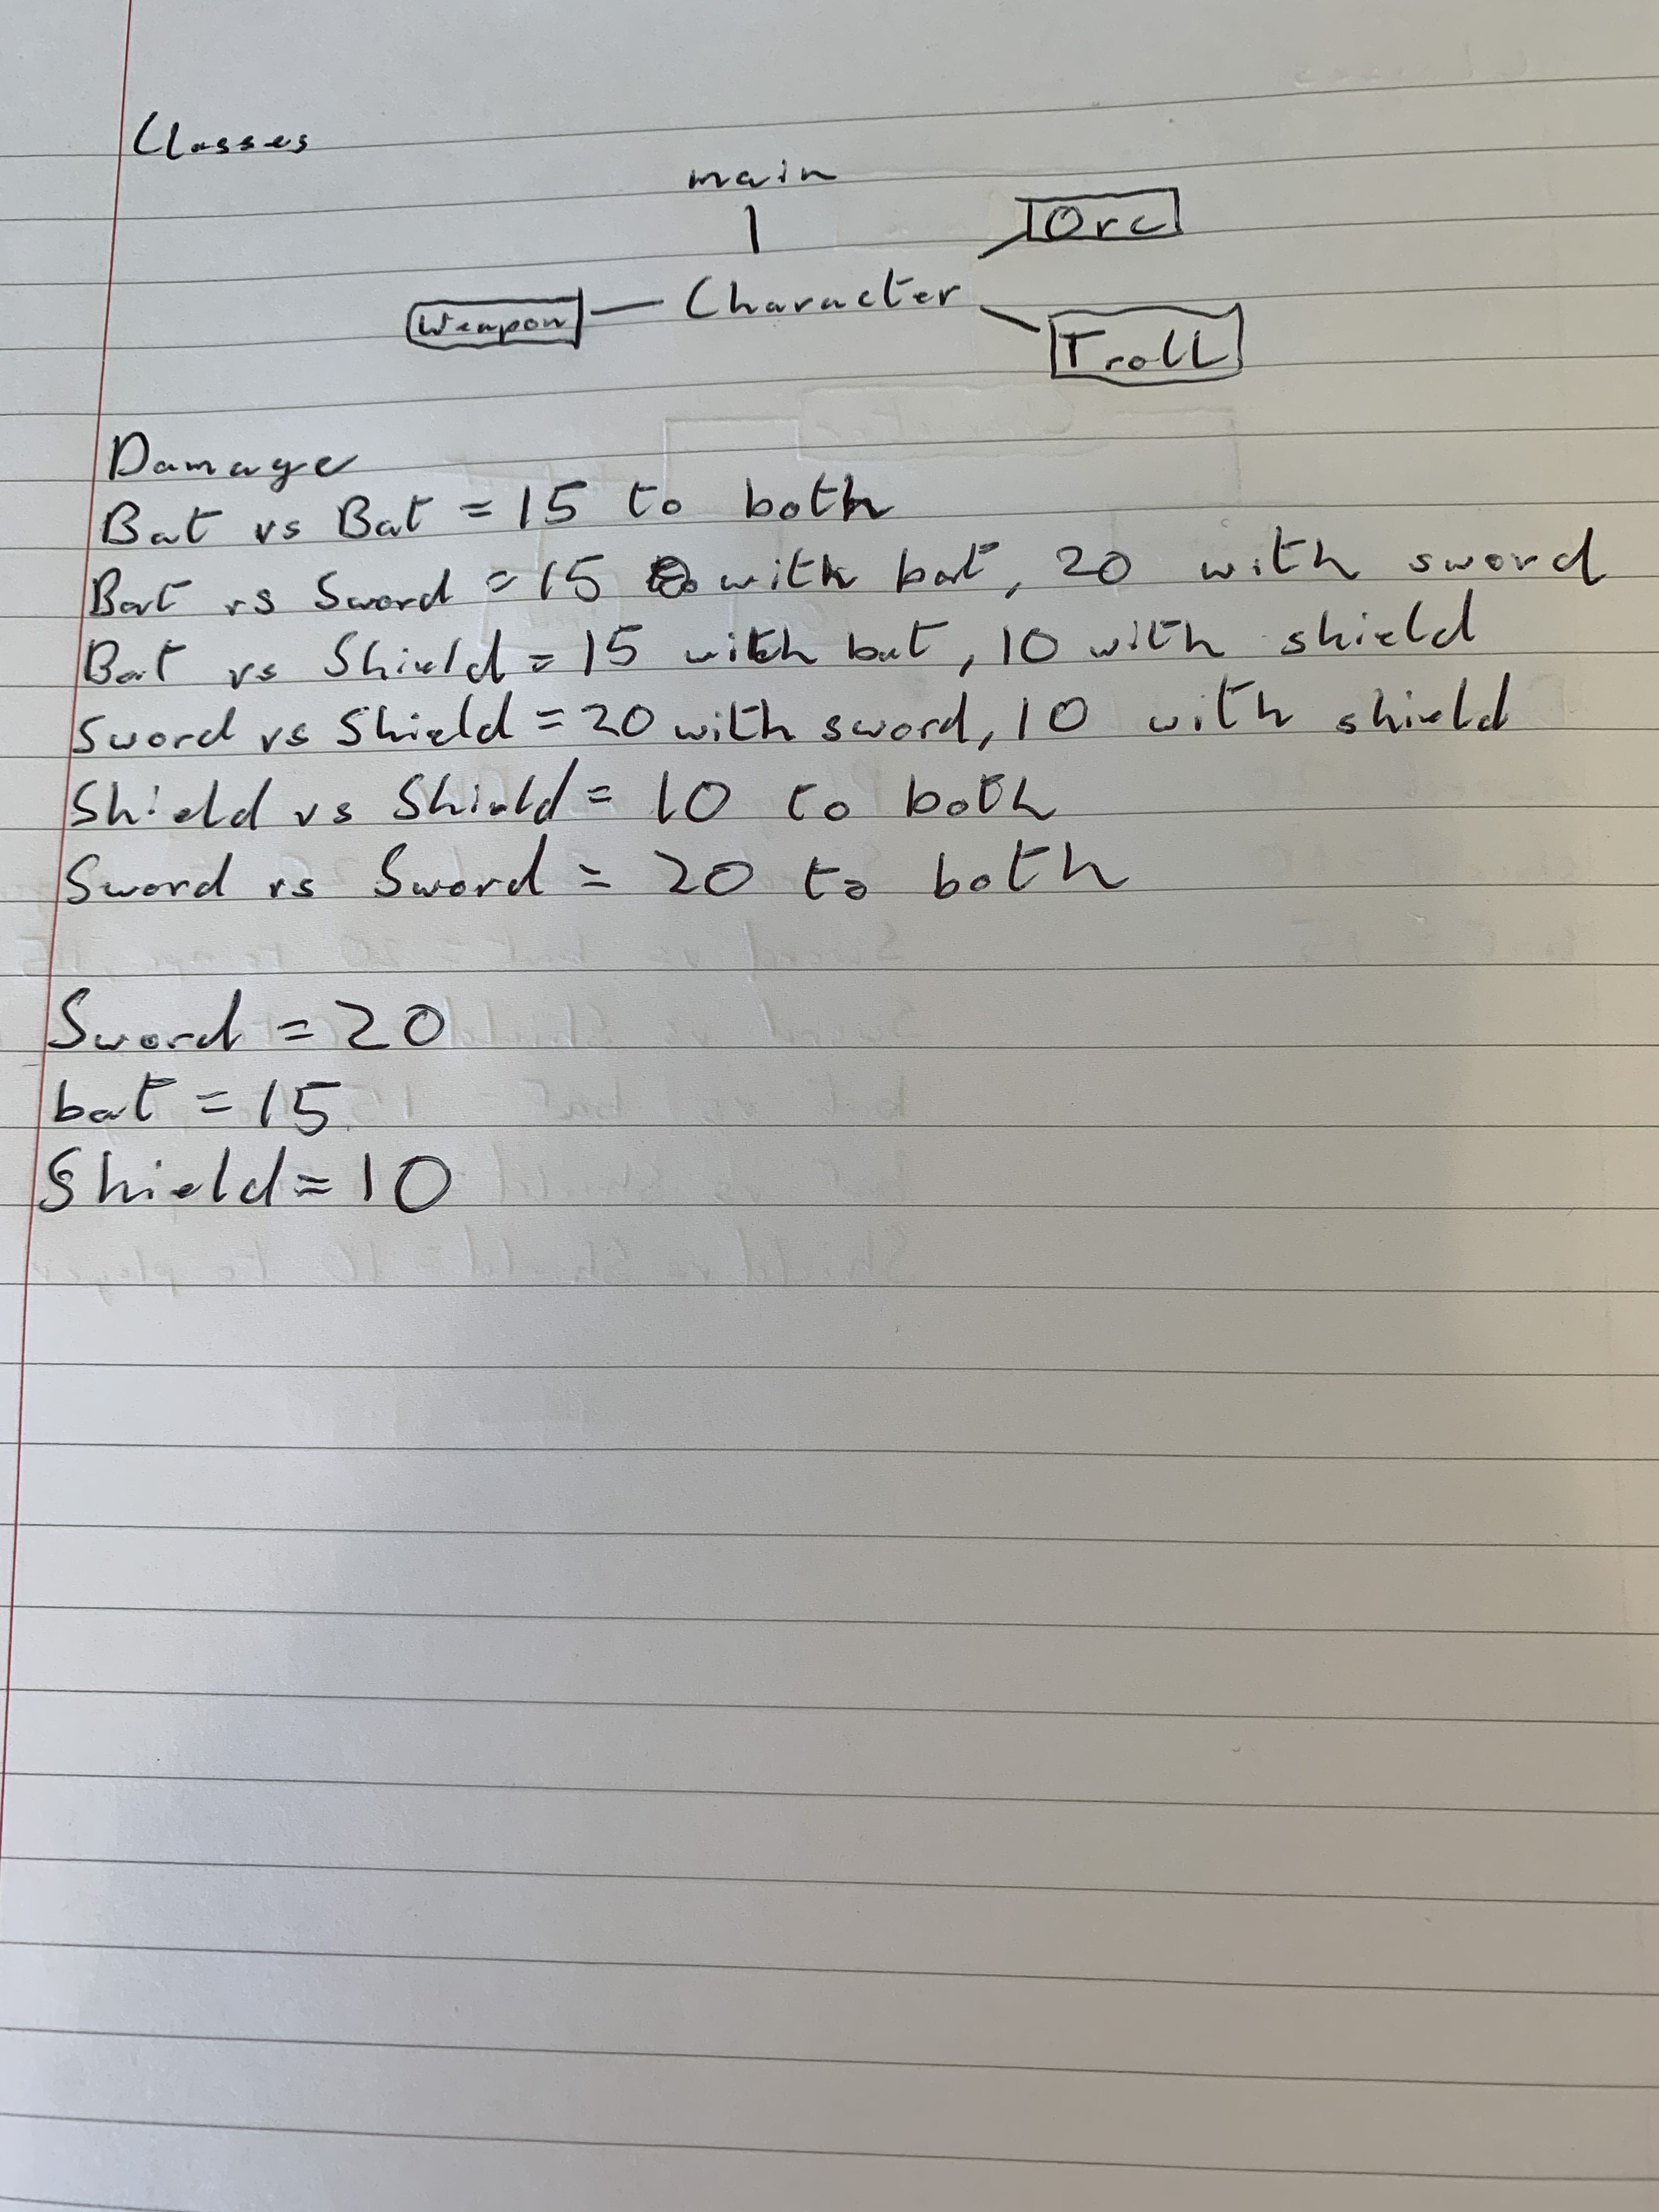 Classes
main
Orc
Weapon Character
Troll
Damage
Bat vs Bat = 15 to both
Bat vs Sword = 15 with bat, 20 with sword
Bat vs Shield = 15 with bat, 10 with shield
Sword vs Shield = 20 with sword, 10 with shield
Shield vs Shield = 10 to both
Sword vs Sword = 20 to both
Sword = 20
bat = 15
Shield = 10